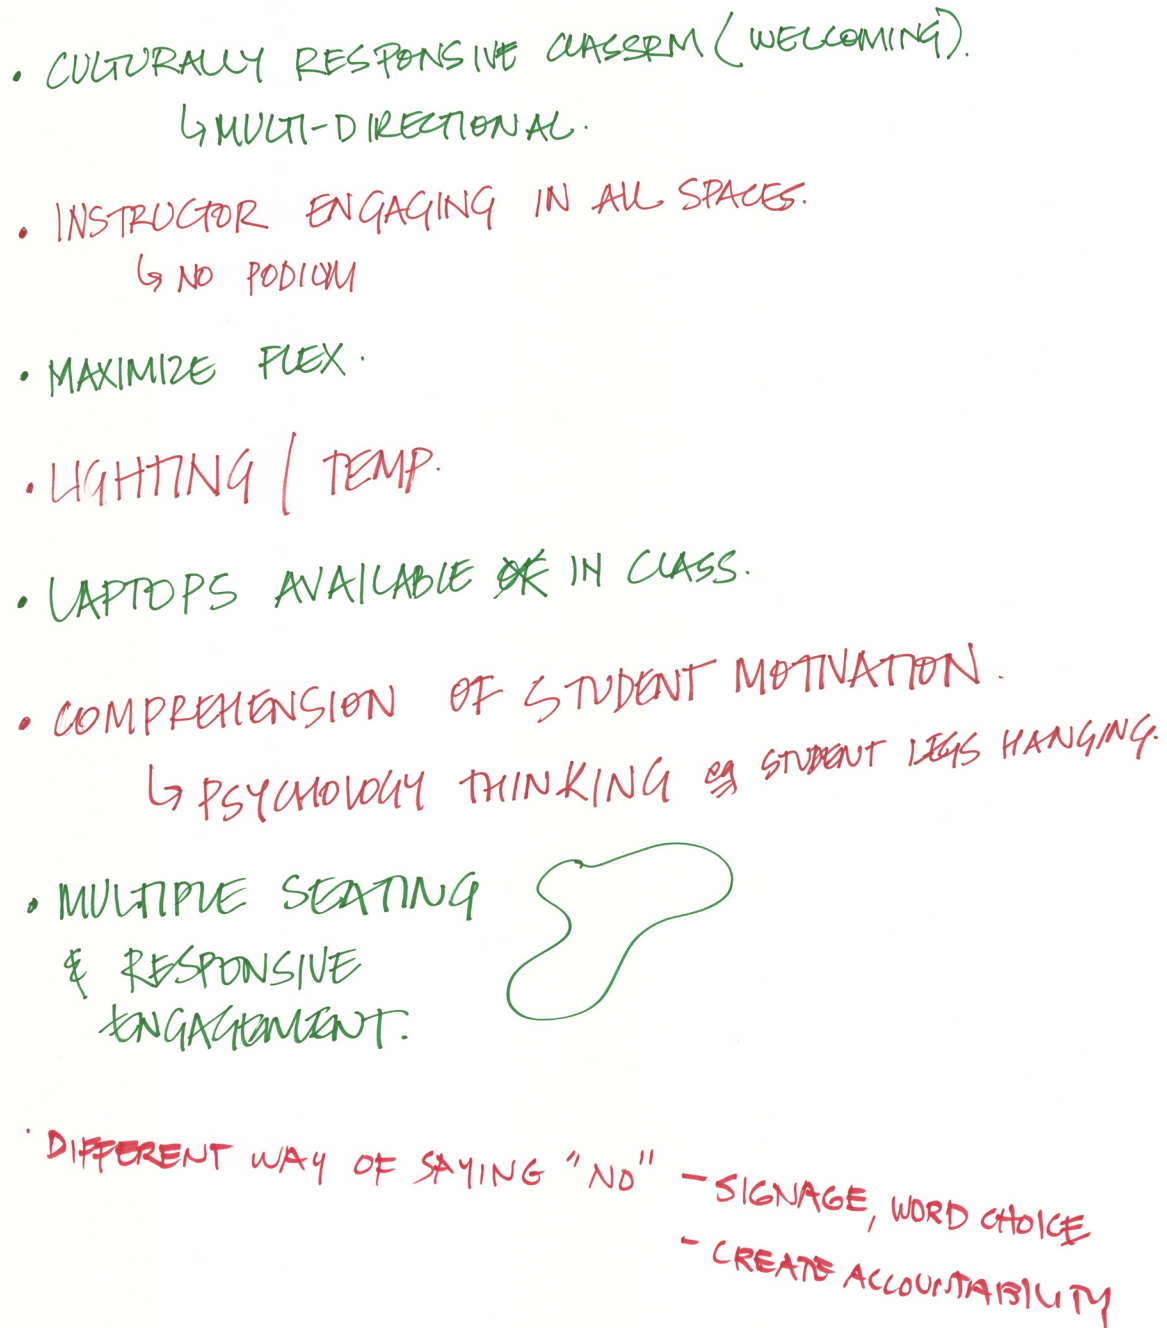 • CULTURALLY RESPONSIVE CLASSRM (WELCOMING).
↳ MULTI-DIRECTIONAL.
• INSTRUCTOR ENGAGING IN ALL SPACES.
↳ NO PODIUM
• MAXIMIZE FLEX.
• LIGHTING / TEMP.
• LAPTOPS AVAILABLE IN CLASS.
• COMPREHENSION OF STUDENT MOTIVATION.
↳ PSYCHOLOGY THINKING eg STUDENT LEGS HANGING.
• MULTIPLE SEATING
& RESPONSIVE
ENGAGEMENT.
• DIFFERENT WAY OF SAYING "NO" - SIGNAGE, WORD CHOICE
- CREATE ACCOUNTABILITY